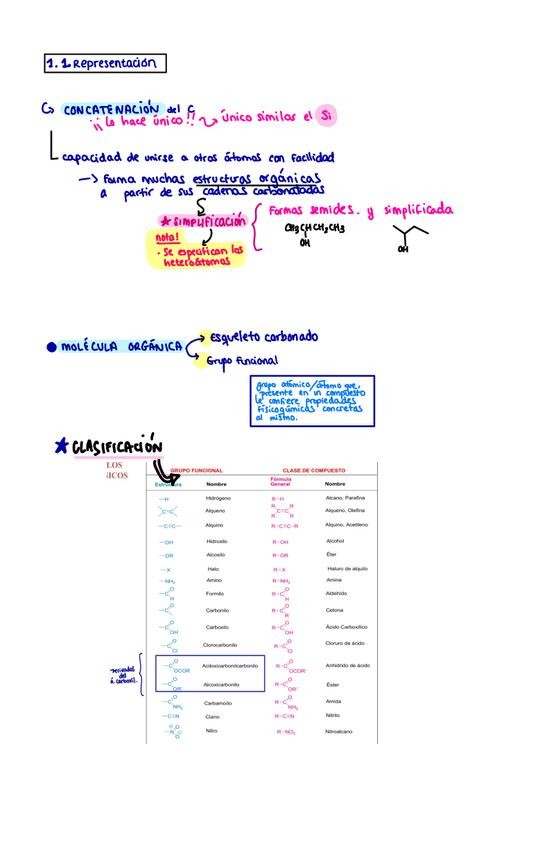 1.1 Representación
CONCATENACIÓN del C
¡¡ Lo hace único !! Único similar el Si
capacidad de unirse a otros átomos con facilidad
—> Forma muchas estructuras orgánicas
a partir de sus cadenas carbonatadas
★ SIMPLIFICACIÓN
Formas semides. y simplificada
CH3CHCH2CH3
OH
OH
nota!
· Se especifican los
heteroátomos
MOLÉCULA ORGÁNICA
Esqueleto carbonado
Grupo Funcional
grupo atómico/átomo que,
presente en un compuesto
le confiere propiedades
fisicoquímicas concretas
al mismo.
★ CLASIFICACIÓN
LOS
NICOS
GRUPO FUNCIONAL CLASE DE COMPUESTO
Estructura Nombre Fórmula General Nombre
—H Hidrógeno R—H Alcano, Parafina
C=C Alqueno R R C=C R R Alqueno, Olefina
—C≡C— Alquino R—C≡C—R Alquino, Acetileno
—OH Hidroxilo R—OH Alcohol
—OR Alcoxilo R—OR Éter
—X Halo R—X Haluro de alquilo
—NH2 Amino R—NH2 Amina
—C O H Formilo R—C O H Aldehído
—C O Carbonilo R—C O R Cetona
—C O OH Carboxilo R—C O OH Ácido Carboxílico
—C O Cl Clorocarbonilo R—C O Cl Cloruro de ácido
—C O OCOR Aciloxicarbonilcarbonilo R—C O OCOR' Anhídrido de ácido
derivados
del
á. carboxíl.
—C O OR' Alcoxicarbonilo R—C O OR' Éster
—C O NH2 Carbamoílo R—C O NH2 Amida
—C≡N Ciano R—C≡N Nitrilo
—N O O Nitro R—NO2 Nitroalcano